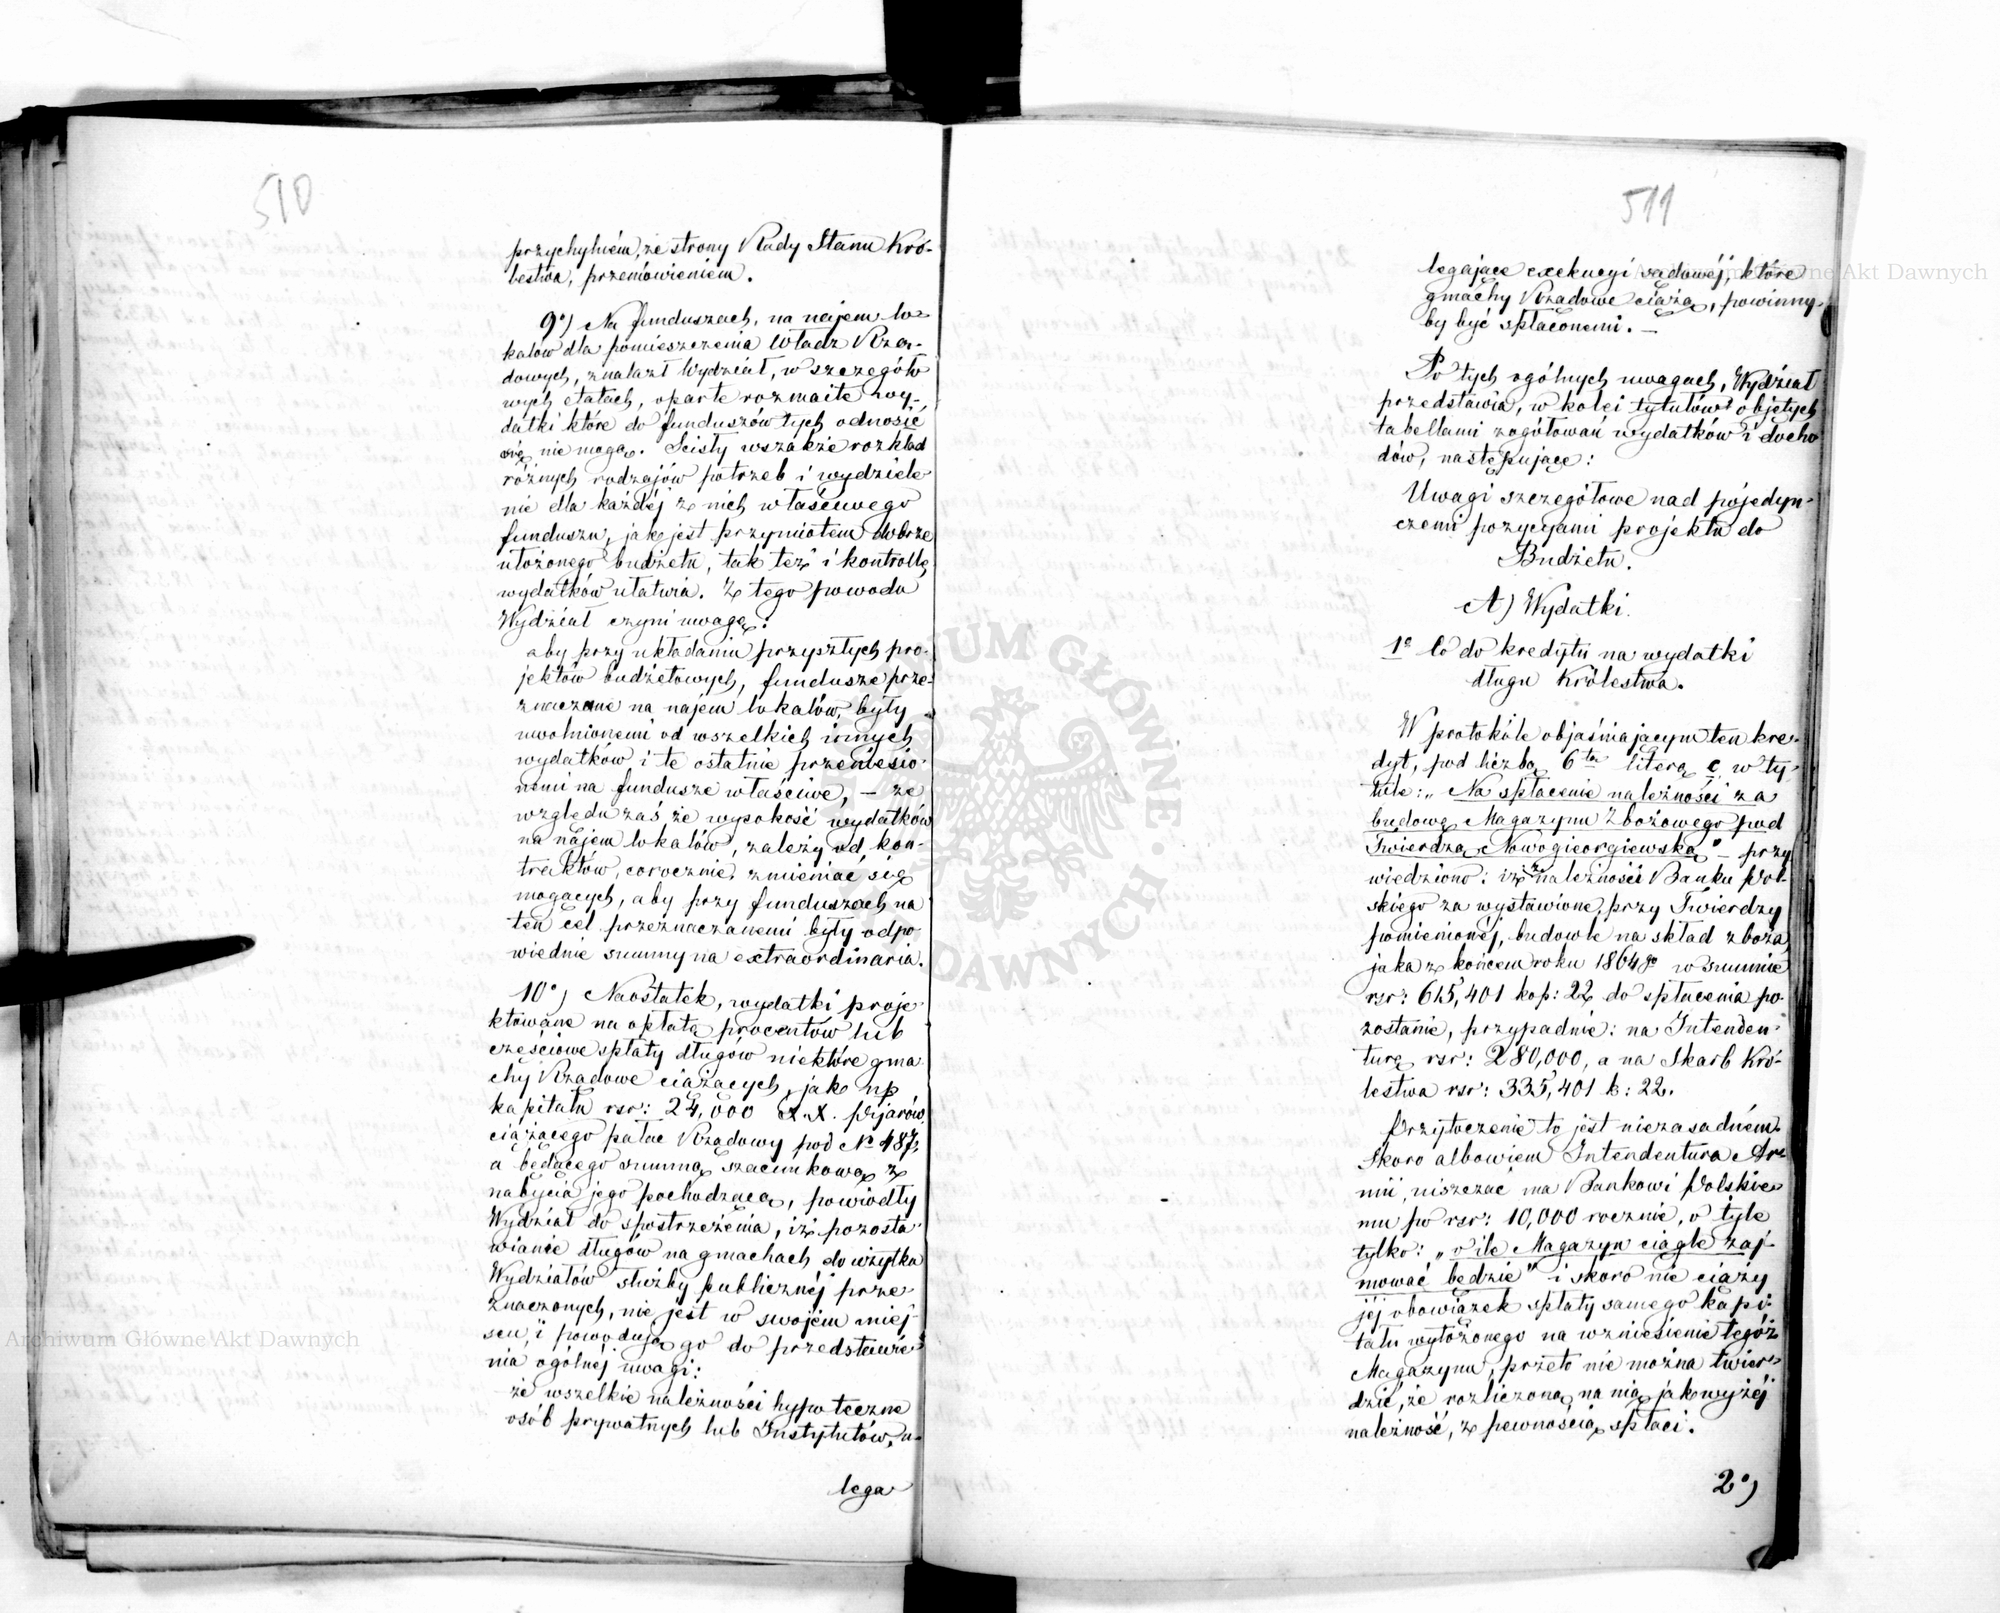 510
przychylném, ze strony Rady Stanu Kró-
lestwa, przemówieniem.
9º) Na funduszach, na najem lo-
kalów dla pomieszczenia Władz Rzą-
dowych, znalazł Wydział, w szczegóło-
wych etatach, oparte rozmaite wy-
datki które do funduszów tych odnosić
się nie mogą. Scisły wszakże rozkład
różnych rodzajów potrzeb i wydziele-
nie dla każdéj z nich właściwego
funduszu, jak jest przymiotem dobrze
ułożonego budżetu, tak też i kontrollę
wydatków ułatwia. Z tego powodu
Wydział czyni uwagę:
aby przy układaniu przyszłych pro-
jektów budżetowych, fundusze prze-
znaczone na najem lokalów, były
uwolnionemi od wszelkich innych
wydatków i te ostatnie przeniesio-
nemi na fundusze właściwe, – ze
względu zaś że wysokość wydatków
na najem lokalów, zależy od kon-
traktów, corocznie zmieniać się
mogących, aby przy funduszach na
ten cel przeznaczanemi były odpo-
wiednie summy na extraordinaria.
10º) Naostatek, wydatki proje-
ktowane na opłatę procentów lub
częściowe spłaty długów niektóre gma-
chy Rządowe ciążących, jak np
kapitału rsr: 24,000 X.X. Pijarów,
ciążącego pałac Rządowy pod Nº 487,
a będącego summą szacunkową z
nabycia jego pochodzącą, powiodły
Wydział do spostrzeżenia, iż pozosta-
wianie długów na gmachach do użytku
Wydziałów służby publicznéj prze-
znaczonych, nie jest w swojem miej-
scu, i powoduje go do przedstawie-
nia ogólnéj uwagi:
że wszelkie należności hypoteczne
osób prywatnych lub Instytutów, u-
lega
511
legające exekucyi sądowéj, które
gmachy Rządowe ciążą, powinny-
by być spłaconemi. –
Po tych ogólnych uwagach, Wydział
przedstawia, w kolei tytułów objętych
tabellami zogółowań wydatków i docho-
dów, następujące:
Uwagi szczegółowe nad pojedyn-
czemi pozycyami projektu do
Budżetu.
A) Wydatki.
1º Co do kredytu na wydatki
długu Królestwa.
W protokóle objaśniającym ten kre-
dyt, pod liczbą 6tą literą c, w ty-
tule: „Na spłacenie należności za
budowę Magazynu Zbożowego pod
Twierdzą Nowogieorgiewską" – przy
wiedziono: iż z należności Banku Pol-
skiego za wystawione, przy Twierdzy
pomienionéj, budowle na skład zboża,
jaka z końcem roku 1864go w summie
rsr: 615,401 kop: 22 do spłacenia po-
zostanie, przypadnie: na Intenden-
turę rsr: 280,000, a na Skarb Kró-
lestwa rsr: 335,401 k: 22.
Przytoczenie to jest niezasadném.
Skoro albowiem Intendentura Ar-
mii, uiszczać ma Bankowi Polskie-
mu po rsr: 10,000 rocznie, o tyle
tylko: „o ile Magazyn ciągle zaj-
mować będzie" i skoro nie ciąży
jéj obowiązek spłaty samego kapi-
tału wyłożonego na wzniesienie tegóż
Magazynu, przeto nie można twier-
dzić, że rozliczoną na nią jak wyżéj
należność, z pewnością spłaci.
2º)
Archiwum Główne Akt Dawnych
Archiwum Główne Akt Dawnych
ARCHIWUM GŁÓWNE AKT DAWNYCH